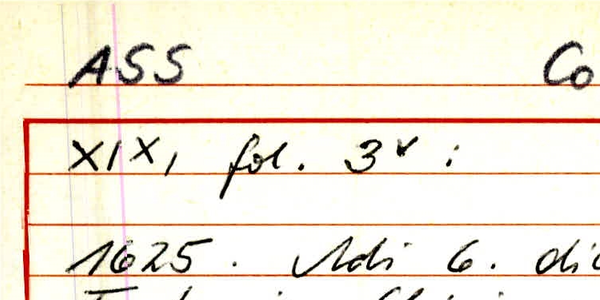 ASS Co
XIX, fol. 3v :
1625. Adi 6. dic